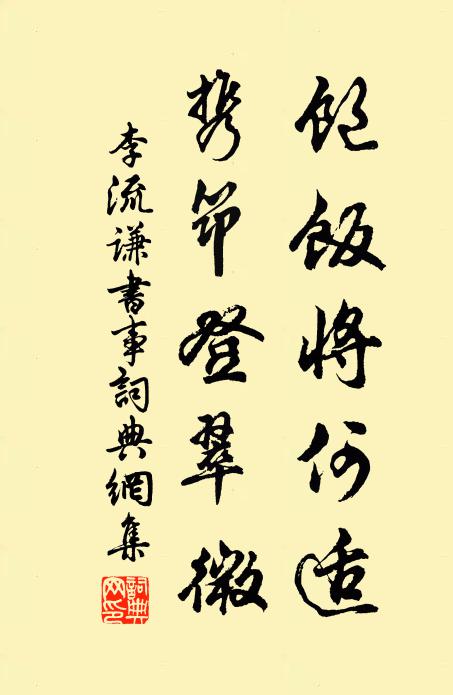 飽飯將何適
携筇登翠微
李流謙書事詞典網集
詞典
网印